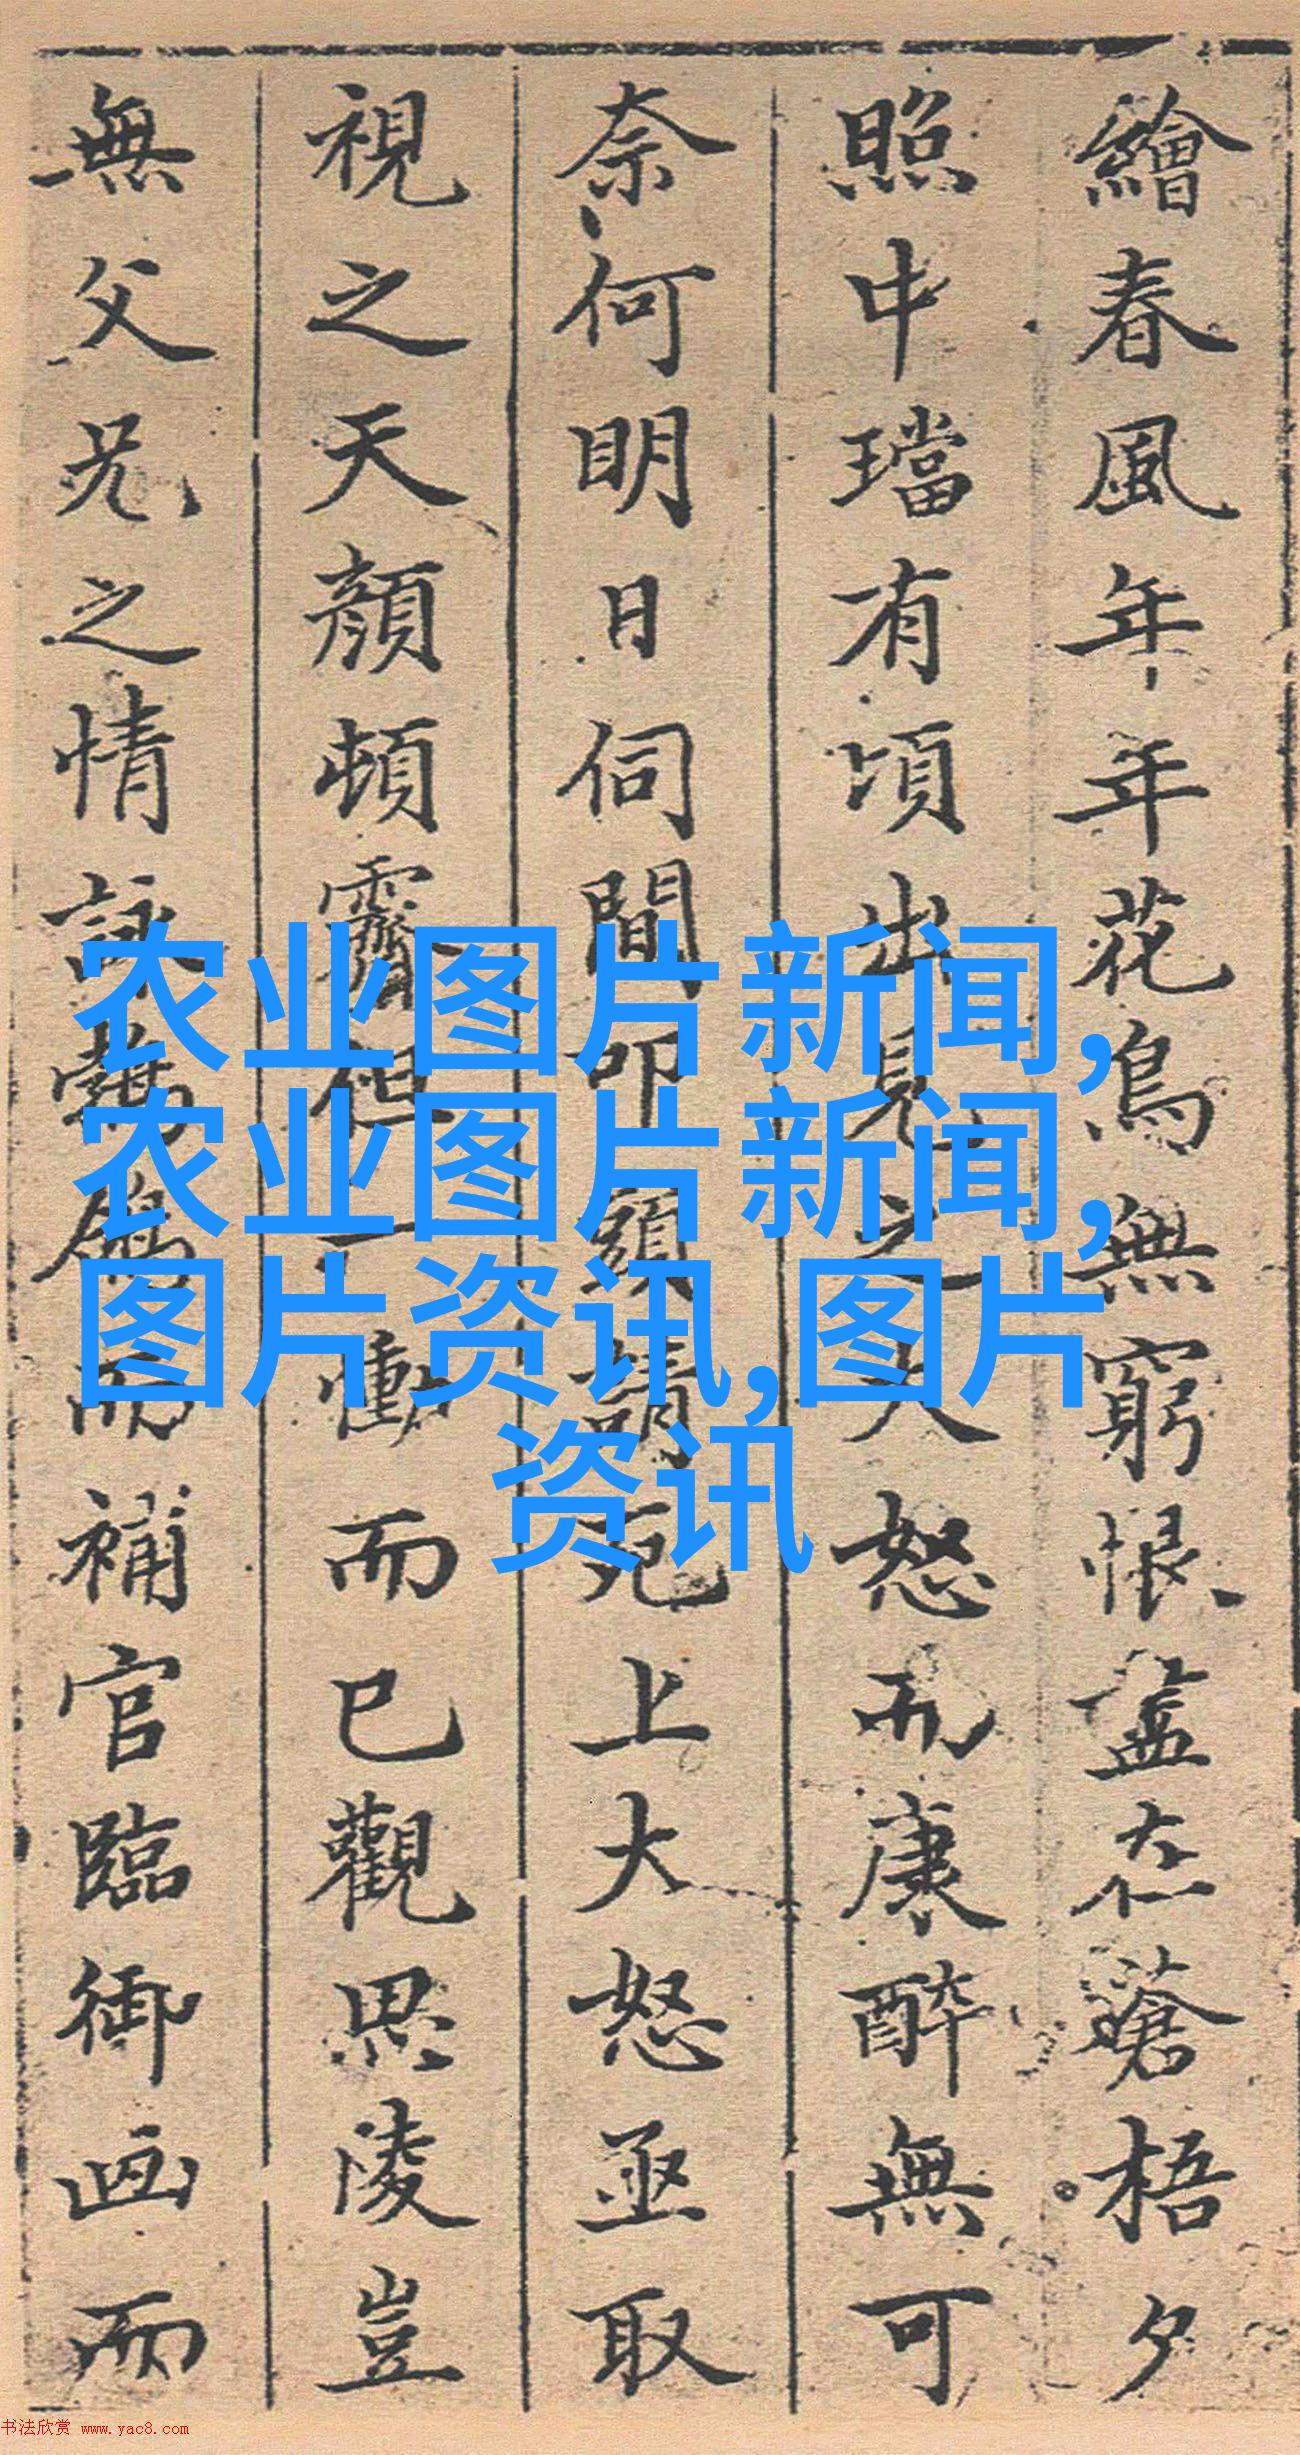 繪春風年年花鳥無窮恨盡在蒼梧夕
照中璫有頃出見之大怒而康醉無可
奈何明日伺間叩頭請死上大怒亟取
視之天顏頓霽但一慟而已觀思陵豈
無父兄之情詠而補官臨御画而
农业图片新闻,
农业图片新闻,
图片资讯,图片
资讯
书法欣赏 www.yac8.com